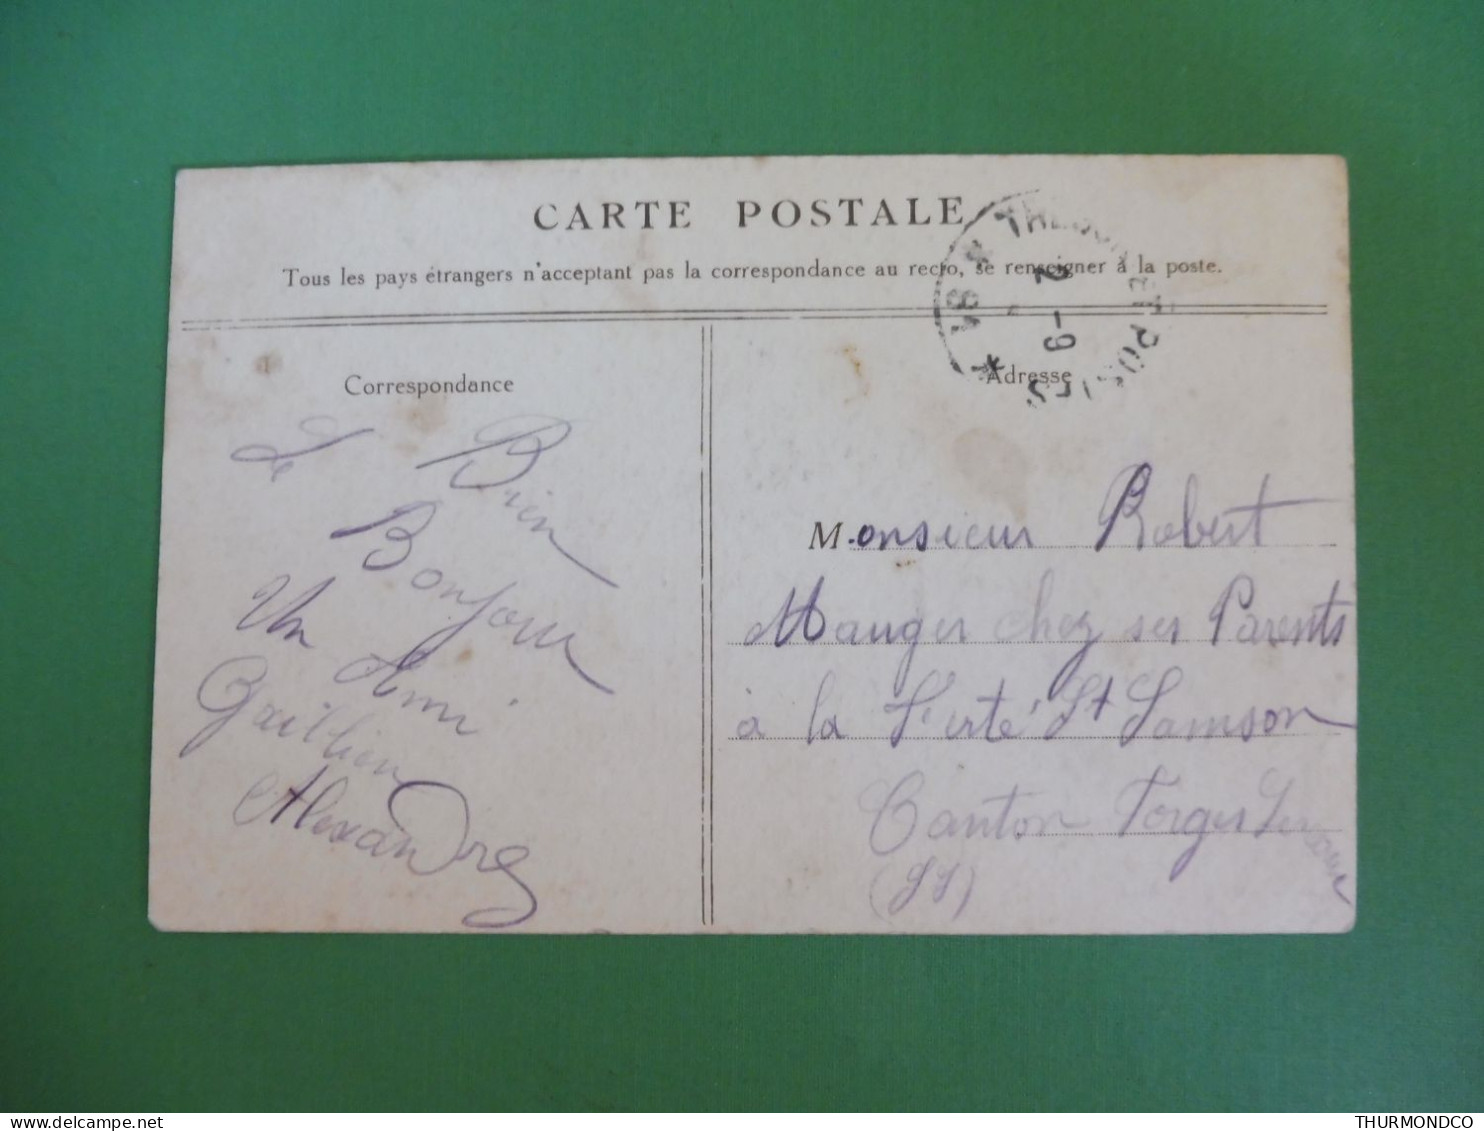 CARTE POSTALE
Tous les pays étrangers n'acceptant pas la correspondance au recto, se renseigner à la poste.
Correspondance
Le Bien
Bonjour
Un Ami
Alexandre
TRESOR ET POSTES * 181 *
2 -9
Adresse
Monsieur Robert
Mauger chez ses Parents
à la Ferté St Samson
Canton Forges
THURMONDCO